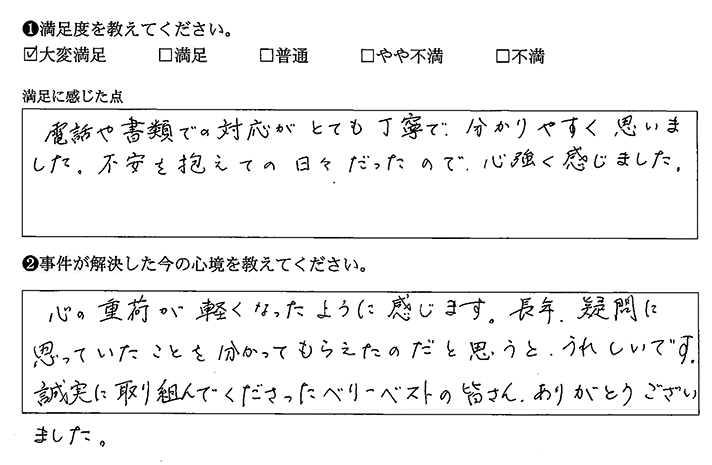 ❶満足度を教えてください。
☑大変満足 □満足 □普通 □やや不満 □不満
満足に感じた点
電話や書類での対応がとても丁寧で、分かりやすく思いま
した。不安を抱えての日々だったので、心強く感じました。
❷事件が解決した今の心境を教えてください。
心の重荷が軽くなったように感じます。長年、疑問に
思っていたことを分かってもらえたのだと思うと、うれしいです。
誠実に取り組んでくださったベリーベストの皆さん、ありがとうござい
ました。